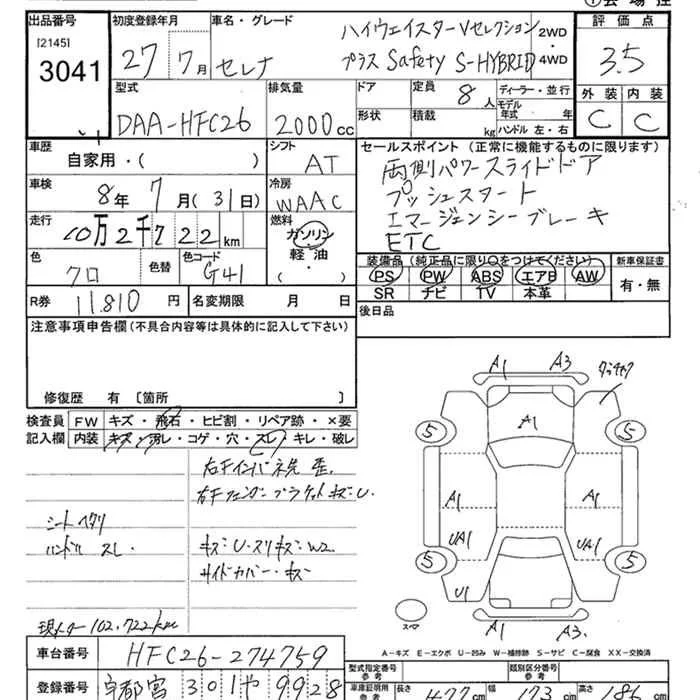 出品番号 初度登録年月 車名・グレード ハイウェイスターVセレクション 2WD 評価点
[2145] 3041 27 7月 セレナ プラス Safety S-HYBRID 4WD 3.5
型式 排気量 ドア 定員 8人 ディーラー・並行 外装 内装
DAA-HFC26 2000cc 形状 積載 kg モデル年式 年 ハンドル 左・右 C C
車歴 シフト セールスポイント (正常に機能するものに限ります)
自家用・( ) AT 両側パワースライドドア
車検 冷房 プッシュスタート
8年 7月 (31日) WAAC エマージェンシーブレーキ
走行 燃料 ETC
10万2千722km ガソリン 軽油・( )
色 色替 色コード 装備品 (純正品に限り○をつけてください) 新車保証書
クロ G41 PS PW ABS エアB AW 有・無
SR ナビ TV 本革
R券 11,810円 名変期限 月 日 後日品
注意事項申告欄(不具合内容等は具体的に記入して下さい)
修復歴 有 [箇所 ]
検査員 FW キズ・飛石・ヒビ割・リペア跡・×要
記入欄 内装 キズ・汚レ・コゲ・穴・スレ・キレ・破レ
右Fインパネ先 歪.
右FフェンダーブラケットキズU.
シートヘタリ
ハンドル スレ. キズ・U・スリキズ・W2
サイドカバー・キズ
現メーター102,722km
A1 A3 タッチアップ
A1
5 5
A1 A1
UA1 UA1
5 5
U1
A1 A3.
スペア
A-キズ E-エクボ U-凹み W-補修跡 S-サビ C-腐食 XX-交換済
車台番号 HFC26-274759
型式指定番号 参考 類別区分番号 参考
登録番号 宇都宮 301 や 9928 車庫証明用 参考 長さ 477cm 幅 173cm 高さ 186cm